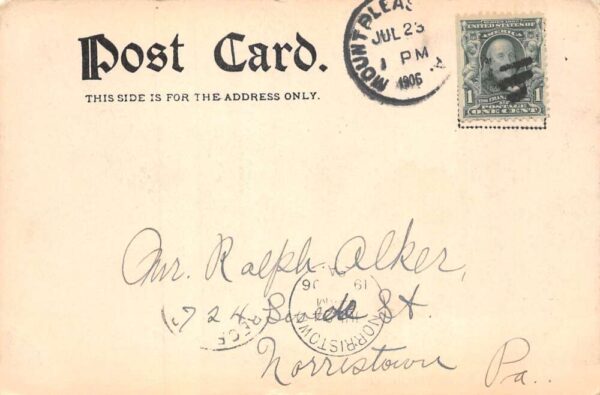 Post Card.
THIS SIDE IS FOR THE ADDRESS ONLY.
MOUNT PLEAS
JUL 23
1 PM
1906
UNITED STATES OF
AMERICA
1 1
POSTAGE
ONE CENT
Mr. Ralph Alker,
724 St.
Norristown
Pa.
NORRISTOWN
19 06
REC'D